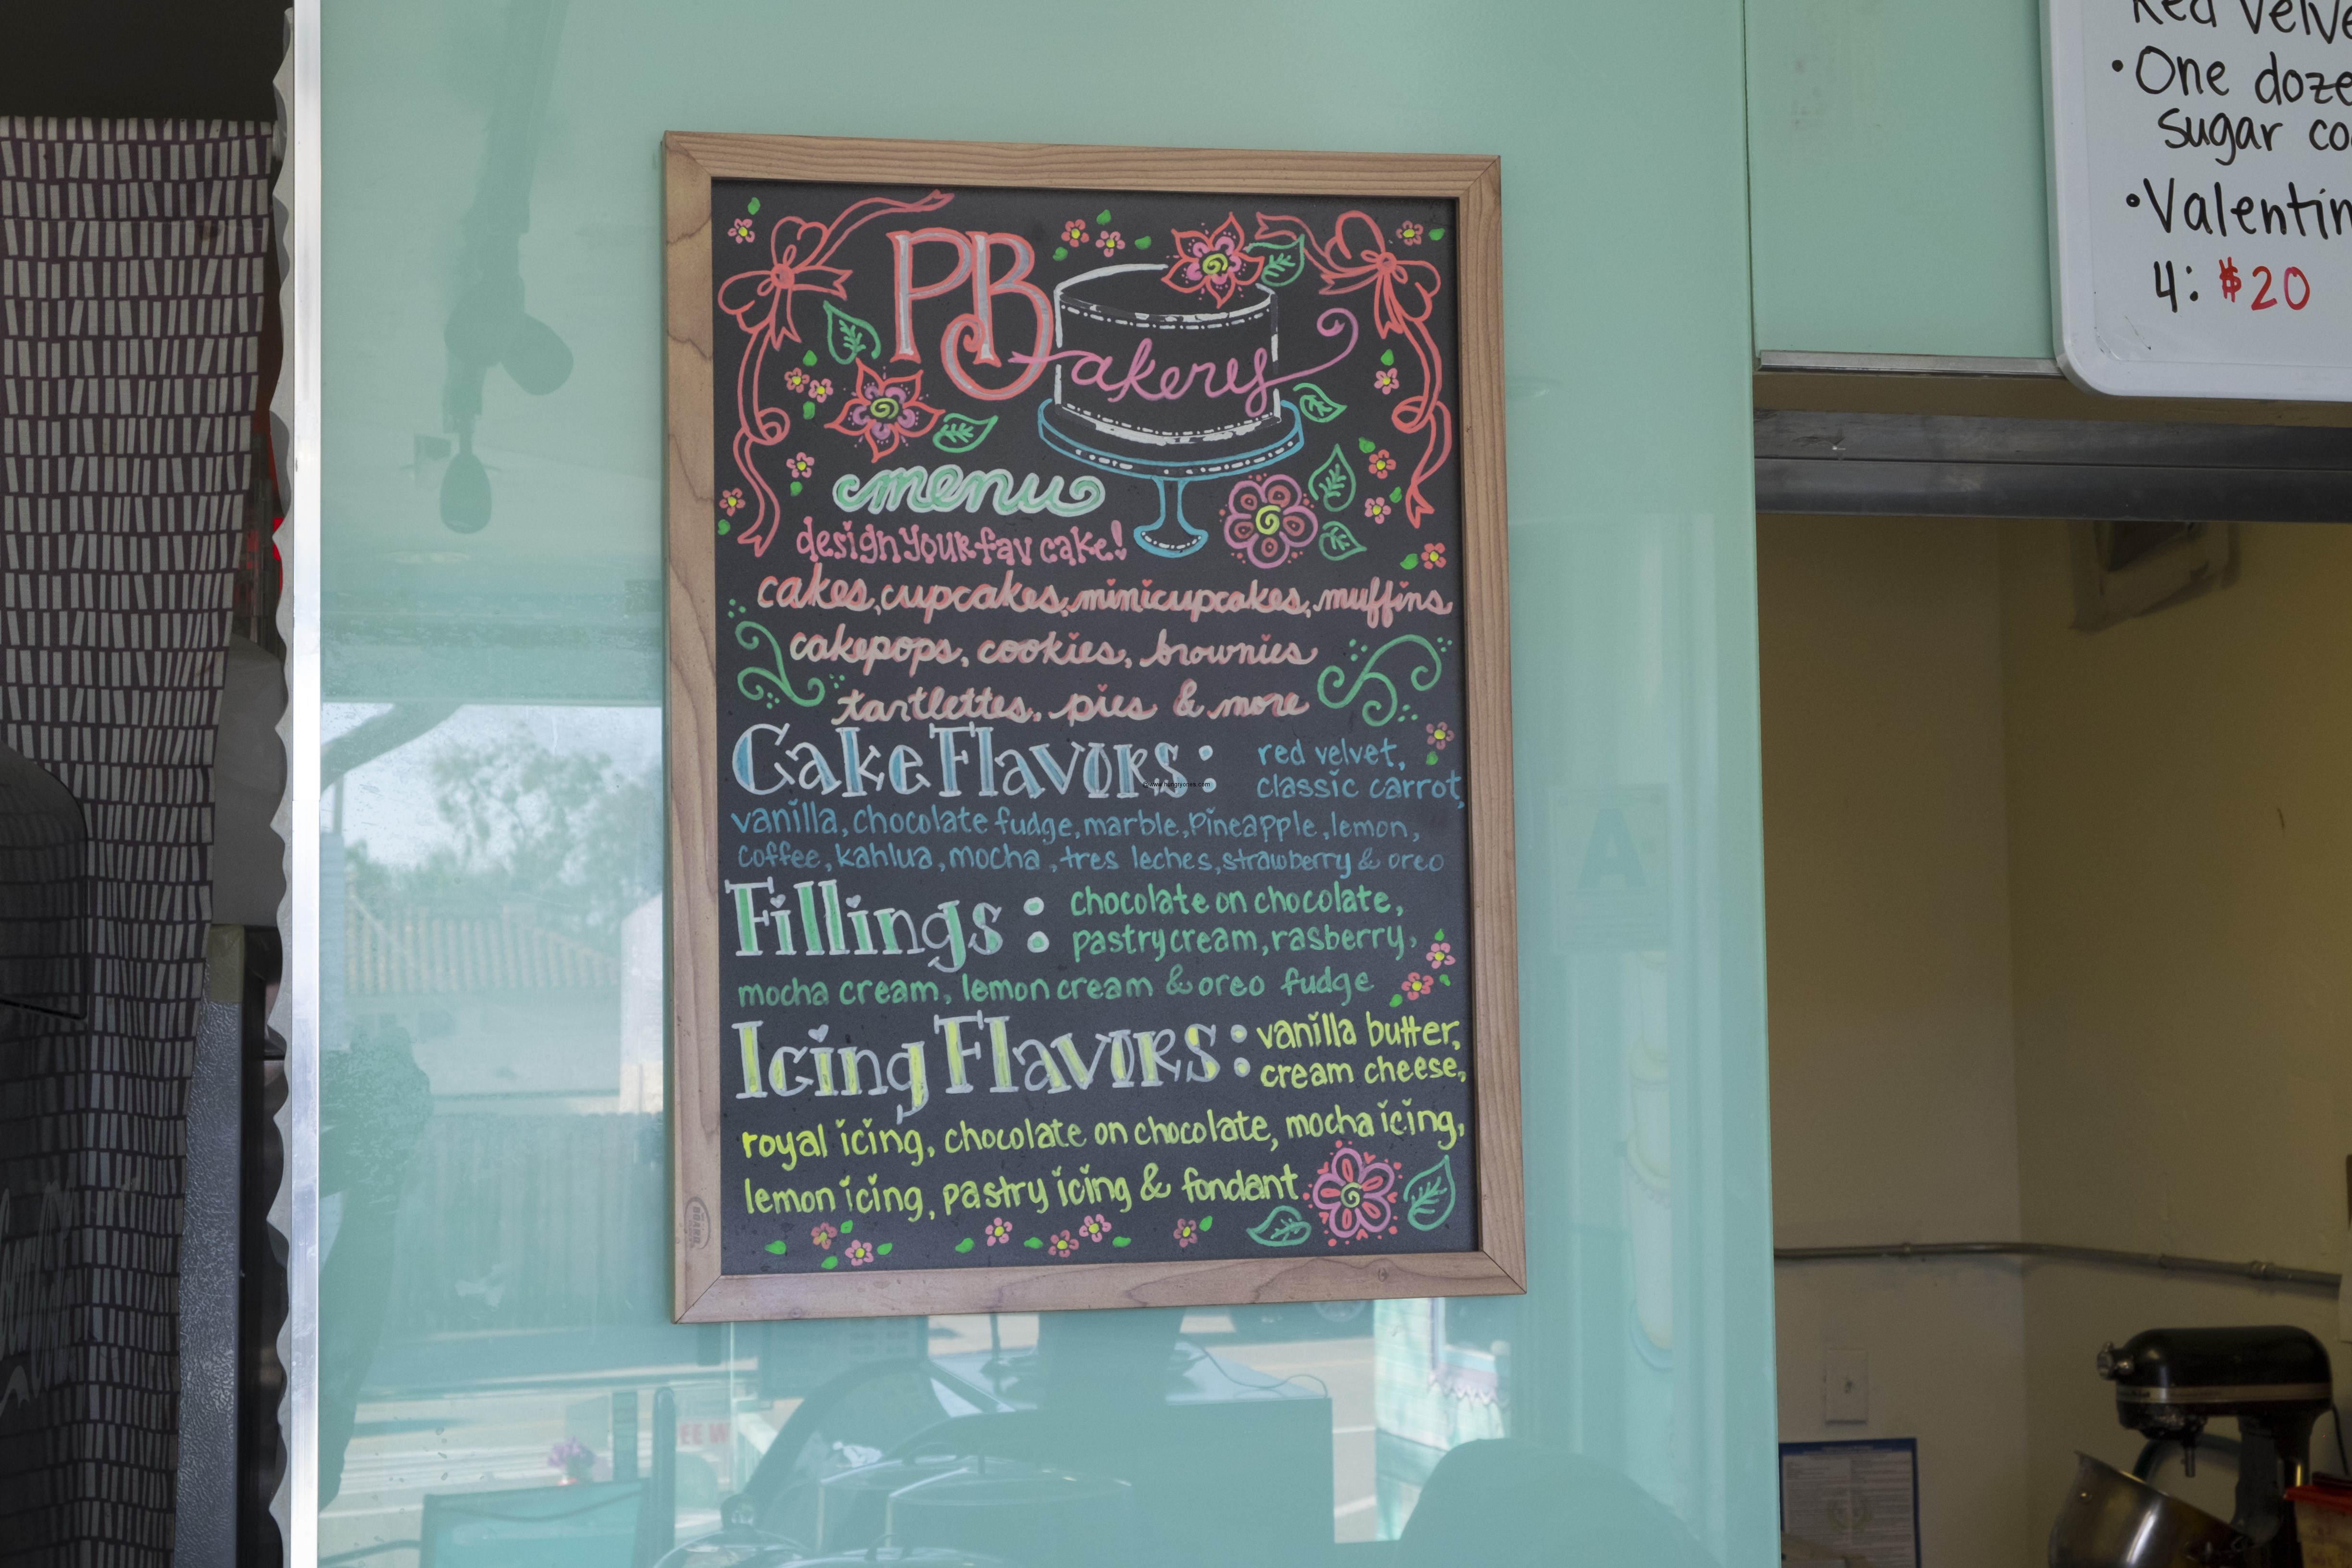 PBakery
menu
design your fav cake!
cakes, cupcakes, minicupcakes, muffins
cakepops, cookies, brownies
tartlettes, pies & more
Cake Flavors: red velvet,
classic carrot,
vanilla, chocolate fudge, marble, Pineapple, lemon,
coffee, kahlua, mocha, tres leches, strawberry & oreo
Fillings: chocolate on chocolate,
pastry cream, rasberry,
mocha cream, lemon cream & oreo fudge
Icing Flavors: vanilla butter,
cream cheese,
royal icing, chocolate on chocolate, mocha icing,
lemon icing, pastry icing & fondant
www.hungryones.com
Red Velve
• One doze
sugar co
• Valentin
4: $20
A
EE W